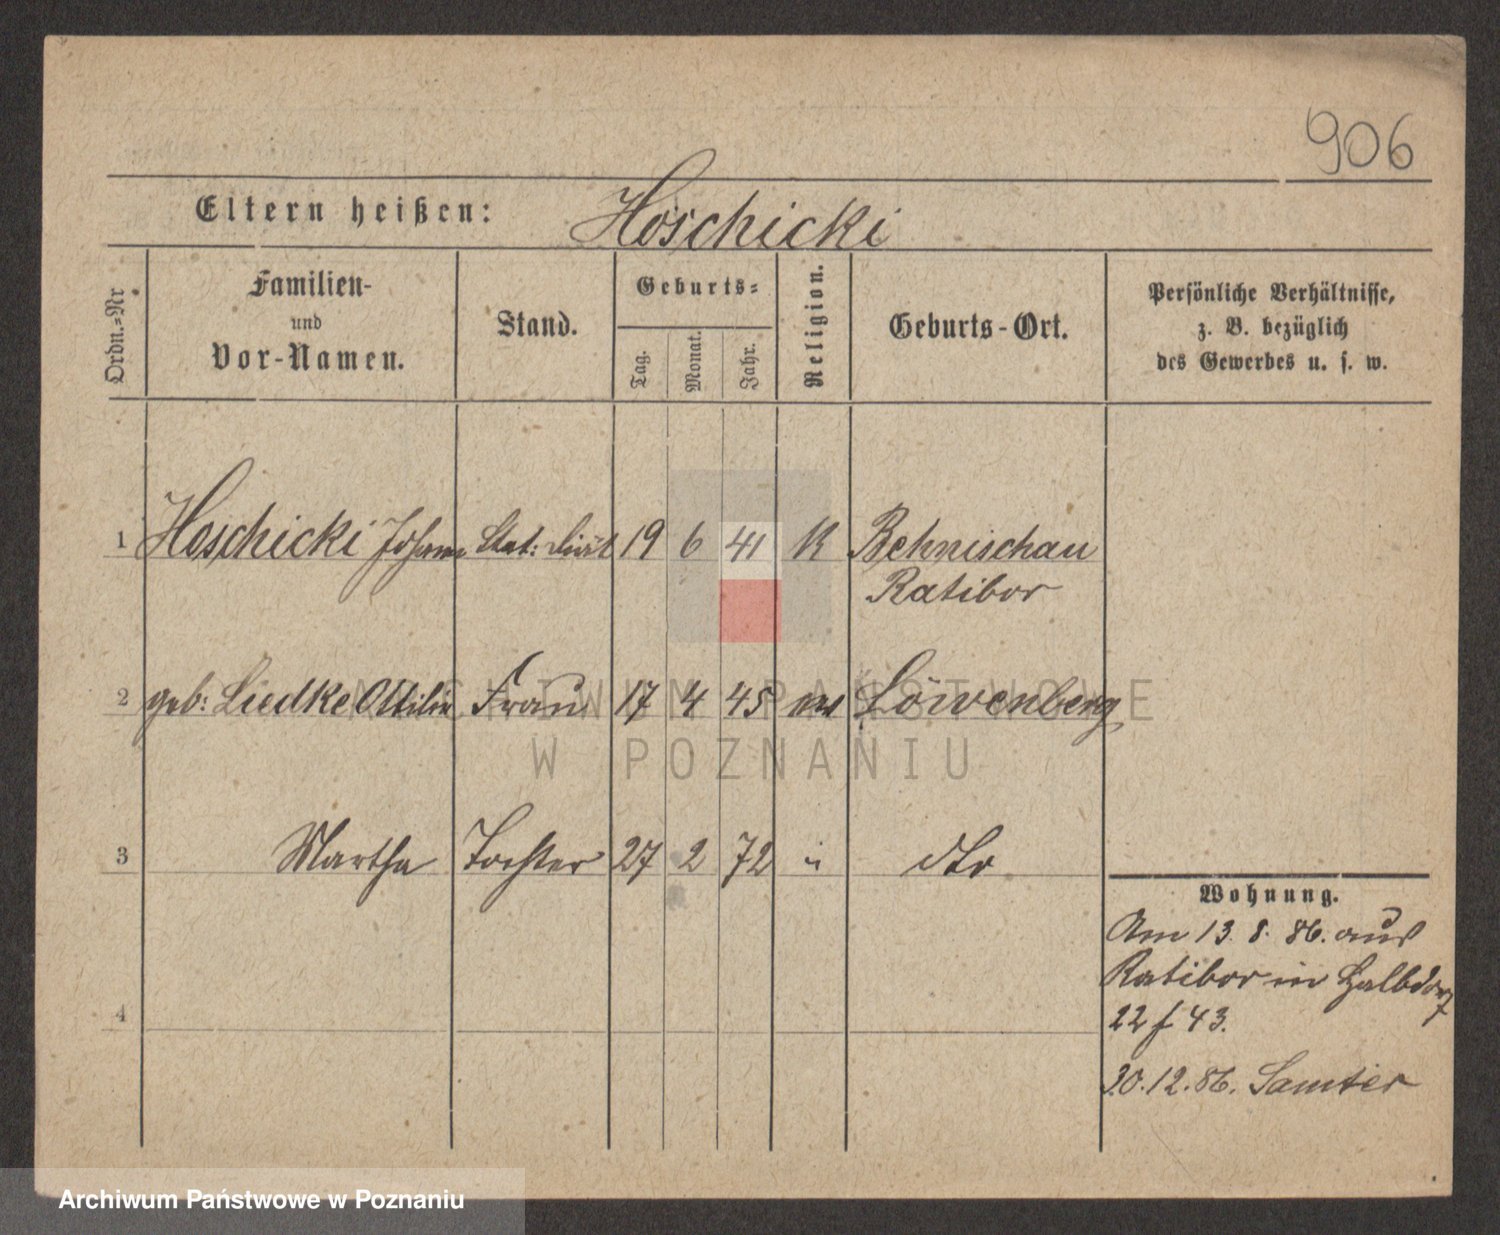 906
Eltern heißen: Hoschicki
Ordn.=Nr
Familien-
und
Vor-Namen.
Stand.
Geburts=
Tag.
Monat.
Jahr.
Religion.
Geburts-Ort.
Persönliche Verhältnisse,
z. B. bezüglich
des Gewerbes u. s. w.
1 Hoschicki Johann Stat: Diät 19 6 41 K Behnischau
Ratibor
2 geb: Liedke Ottilie Frau 17 4 45 ev Löwenberg
ARCHIWUM PAŃSTWOWE
W POZNANIU
3 Martha Tochter 27 2 72 " dto
Wohnung.
Am 13. 8. 86. aus
Ratibor in Halbdorf
22 f 43.
4
30.12.86. Samter
Archiwum Państwowe w Poznaniu